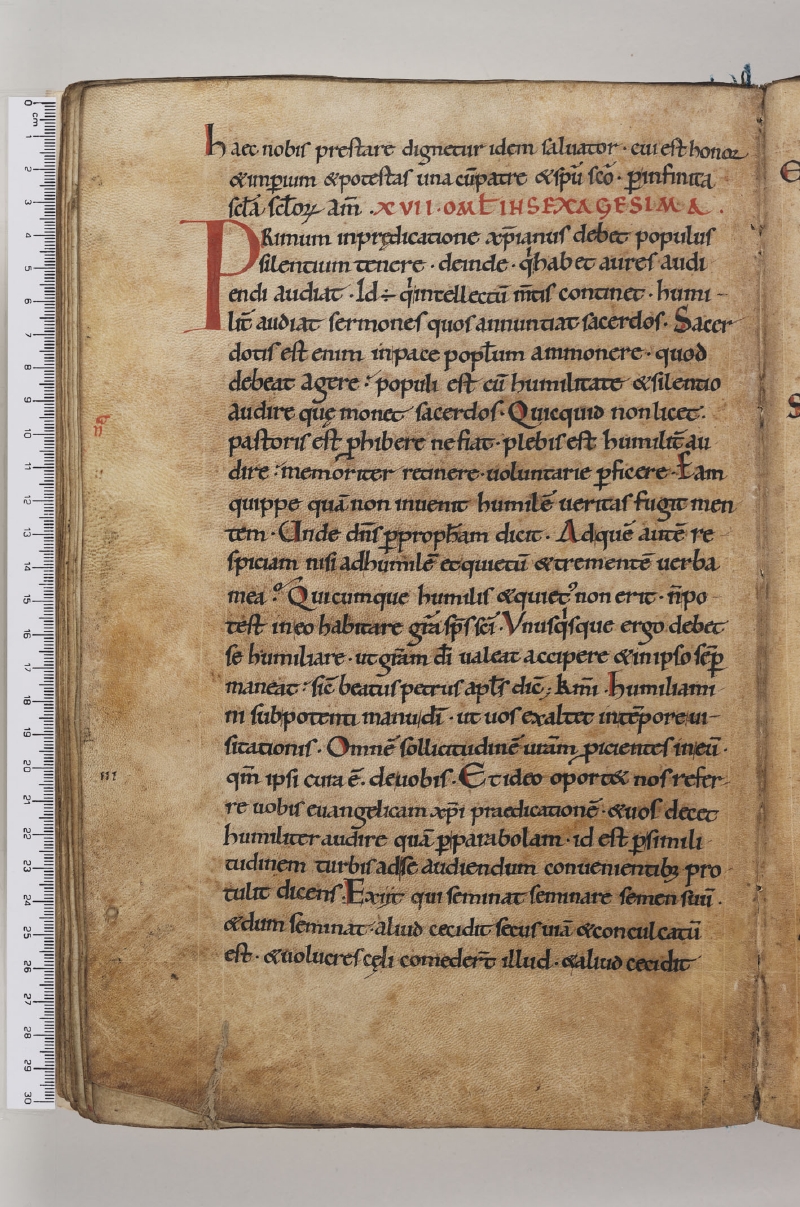 haec nobis prestare dignetur idem saluator · cui est honor
&imp̄ium &potestas una cū patre &sp̄u sc̄o · p̄ infinita
sc̄la sc̄loꝝ am̄ . XVII · OML̄ IN SEXAGESIMA .
PRimum inpredicatione xp̄ianus debet populus
silentium tenere · deinde · q̇ habet aures audi
endi audiat · Id ÷ q̇ intellectū m̄tis continet · humi-
lit̄ audiat sermones quos annuntiat sacerdos · Sacer
dotis est enim inpace popl̄um ammonere · quod
debeat agere : populi est cū humilitate &silentio
audire quę monet sacerdos · Quicquid non licet ·
pastoris est p̄hibere ne fiat · plebis est humilit̄ au
dire : memoriter retinere · uoluntarie p̄ficere · Eam
quippe quā non inuenit humilē ueritas fugit men
tem · Unde dn̄s p̄ proph̄am dicit · Ad quē autē re
spiciam nisi ad humilē et quietū &trementē uerba
mea ? Quicumque humilis &quiet᾽ non erit · n̄ po
test in eo habitare gr̄a sp̄s sc̄i · Vnusq̇sque ergo debet
se humiliare · ut gr̄am dī ualeat accipere &in ipso sēp̄
maneat : sic̄ beatus petrus apl̄s dic̄; km̄i · humiliami
ni sub potenti manu dī · ut uos exaltet in tēpore ui-
sitationis · Omnē sollicitudinē ur̄am picientes in eū ·
qm̄ ipsi cura ē · de uobis · Et ideo oport& nos refer
re uobis euangelicam xp̄i praedicationē · &uos decet
humiliter audire quā p̄ parabolam · id est p̄ simili
tudinem turbis ad se audiendum conuenientibꝫ pro
tulit dicens · Exiit qui seminat seminare semen suū ·
&dum seminat · aliud cecidit secus uiā &conculcatū
est · &uolucres cęli comeder̄t illud · &aliud cecidit